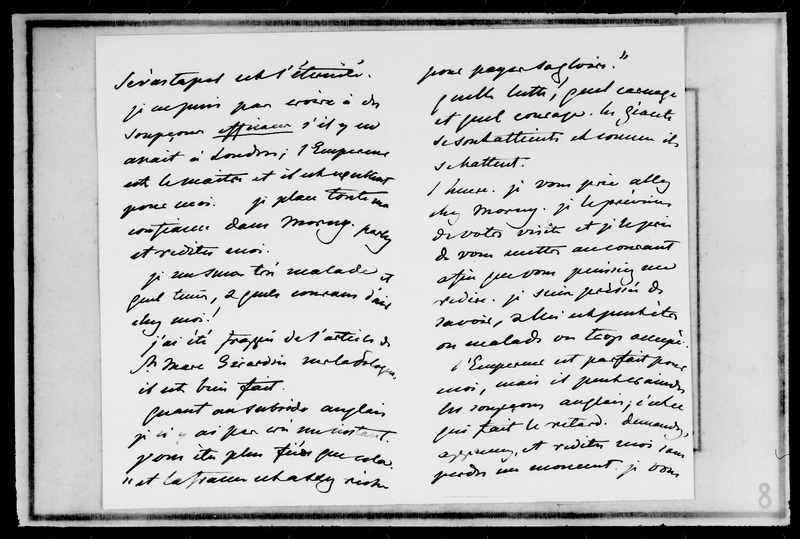 Sévastopol est l'éternité.
je ne puis pas croire à des
soupçons efficaces s'il y en
avait à Londres; l'Empereur
est le maître et il est excellent
pour moi. je place toute ma
confiance dans Morny. parlez
et redites moi.
je me sens très malade et
quel tems, & quels courans d'air
chez moi!
j'ai été frappée de l'article de
St Marc Girardin sur la Pologne.
il est bien fait.
quant au subside anglais
je n'y ai pas cru un instant.
vous êtes plus fiers que cela.
"et la france est assez riche
pour payer sa gloire."
quelle lutte, quel carnage
et quel courage. les géants
se sont battus et comme ils
se battent.
1 heure. je vous prie allez
chez Morny. je le préviens
de votre visite et je le prie
de vous mettre au courant
afin que vous puissiez me
redire. je suis pressée de
savoir, & lui est peut être
ou malade ou trop occupé.
l'Empereur est parfait pour
moi, mais il peut craindre
les soupçons anglais; c'est ce
qui fait le retard. demandez,
apprenez, et redites moi sans
perdre un moment. je vous
8